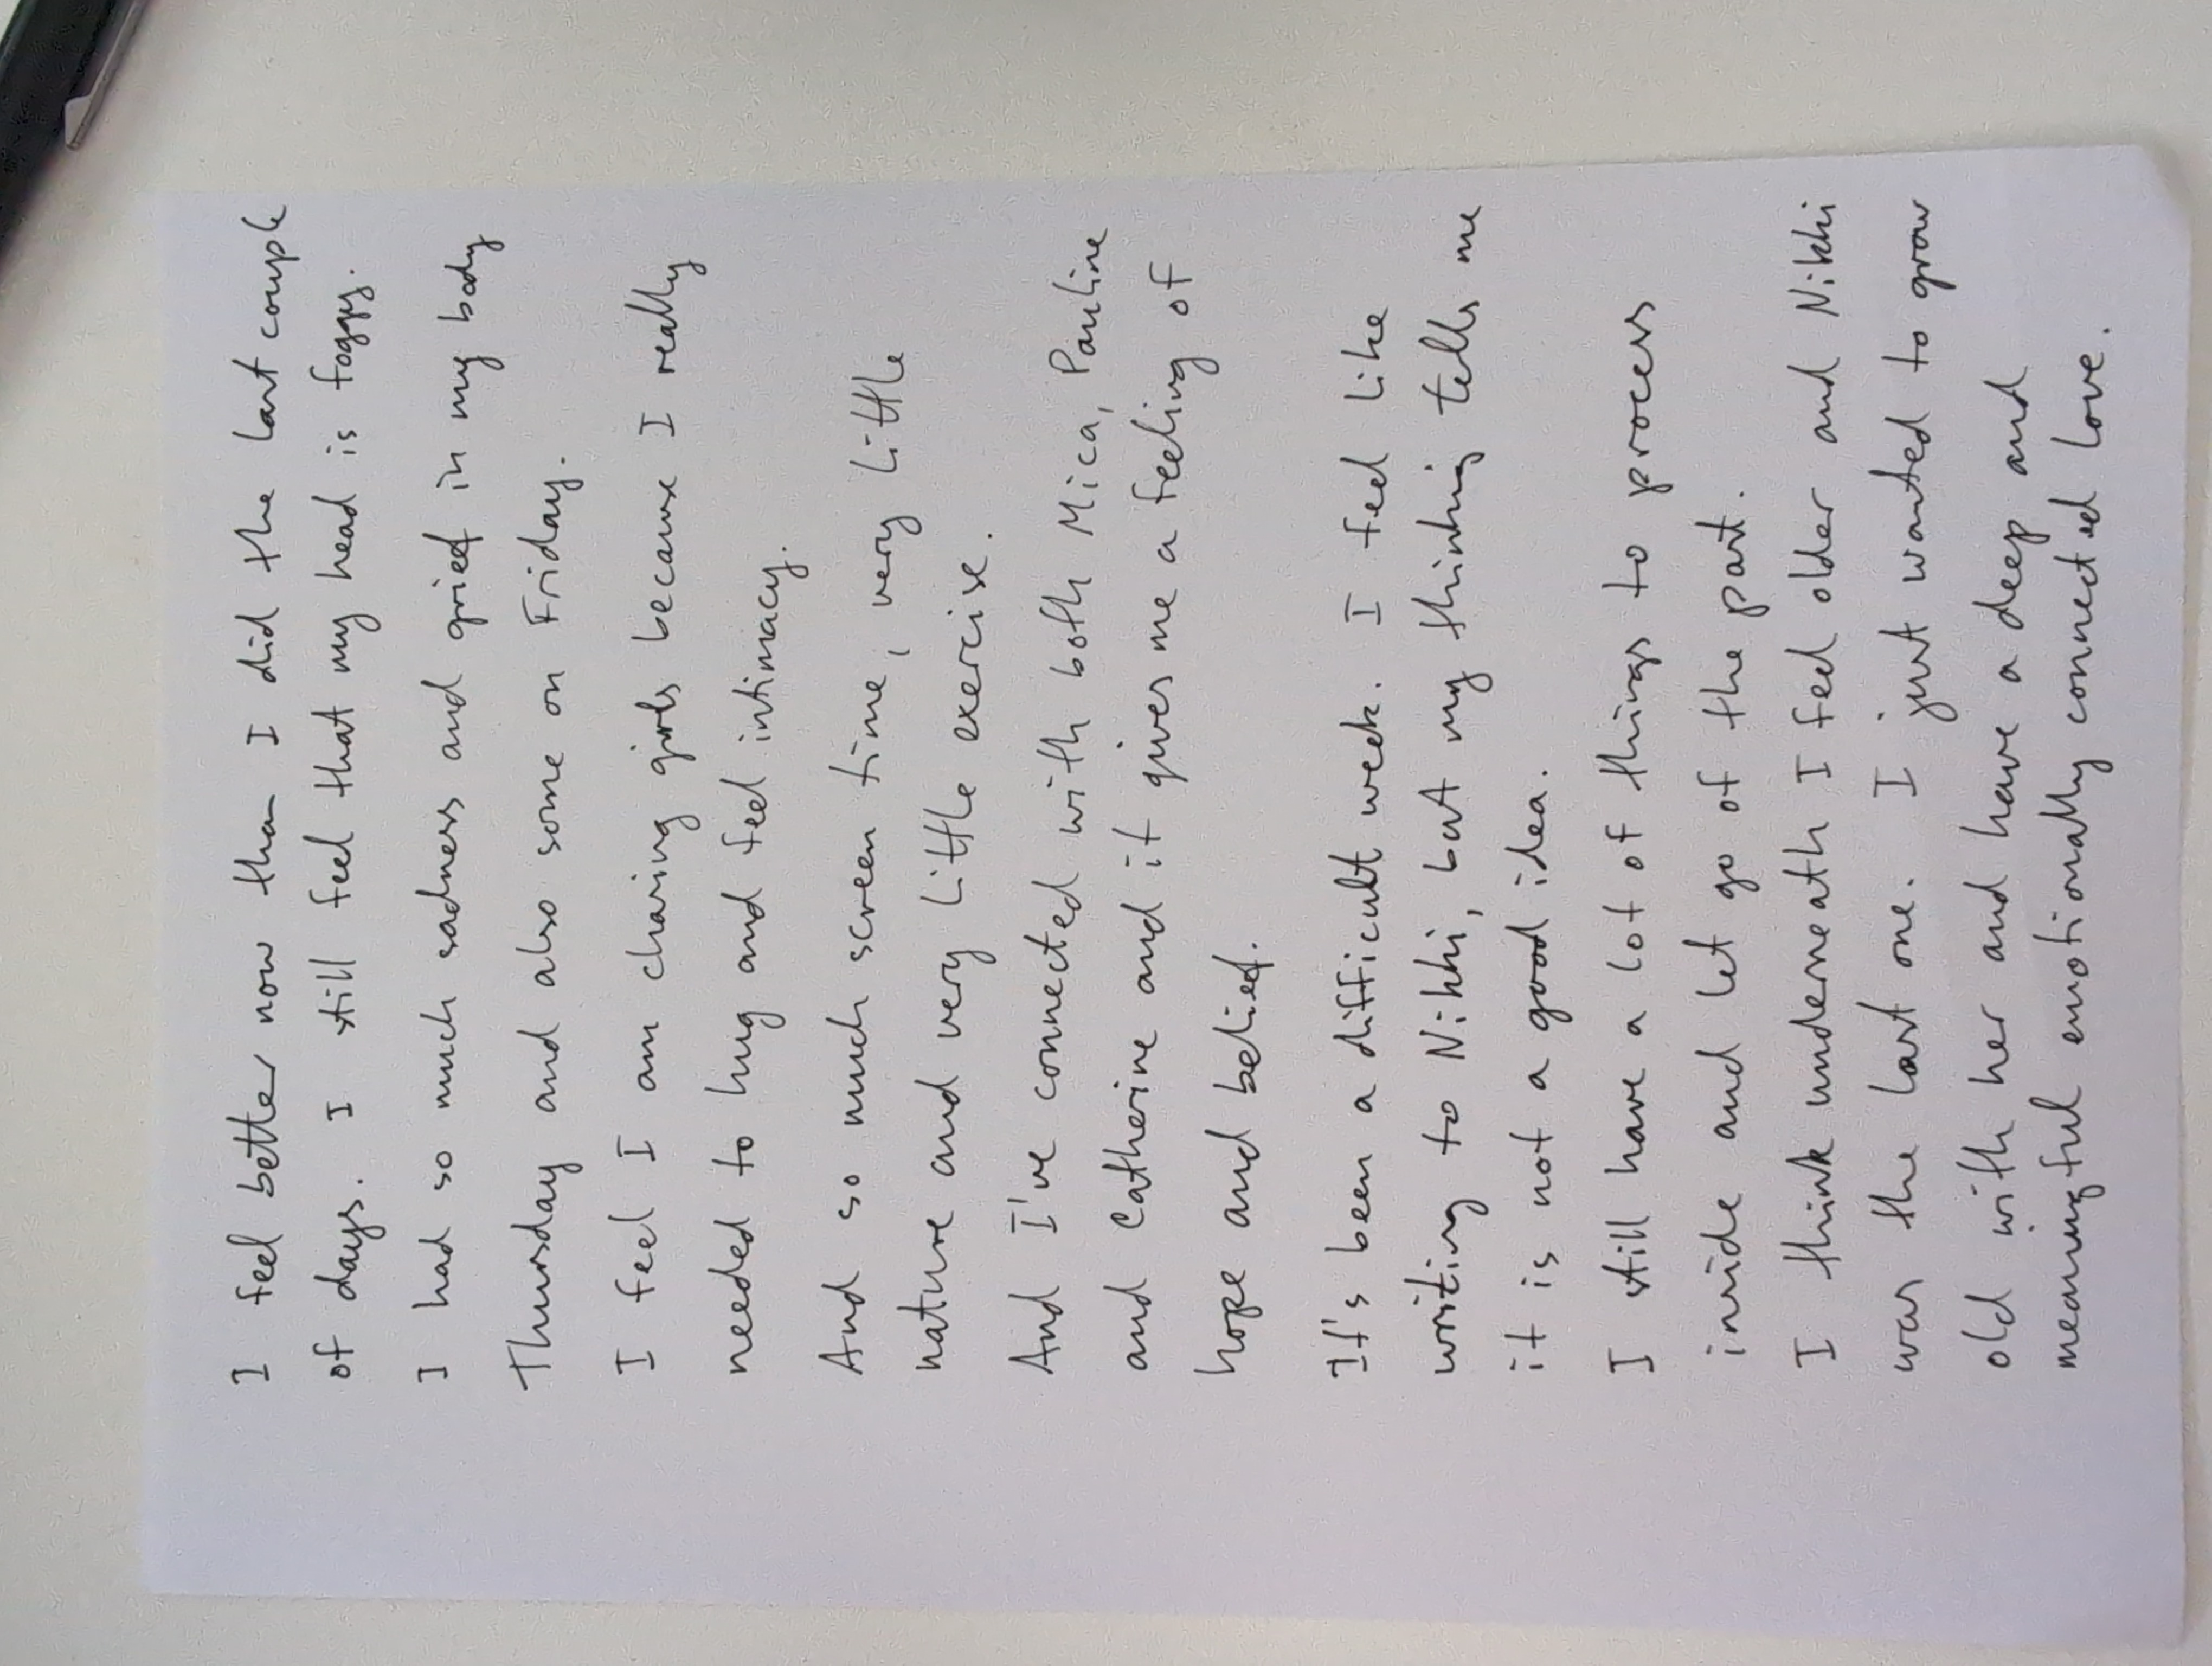 I feel better now than I did the last couple
of days. I still feel that my head is foggy.
I had so much sadness and grief in my body
Thursday and also some on Friday.
I feel I am chasing girls because I really
needed to hug and feel intimacy.
And so much screen time, very little
nature and very little exercise.
And I've connected with both Mica, Pauline
and Catherine and it gives me a feeling of
hope and belief.
It's been a difficult week. I feel like
writing to Nikki, but my thinking tells me
it is not a good idea.
I still have a lot of things to process
inside and let go of the past.
I think underneath I feel older and Nikki
was the last one. I just wanted to grow
old with her and have a deep and
meaningful emotionally connected love.